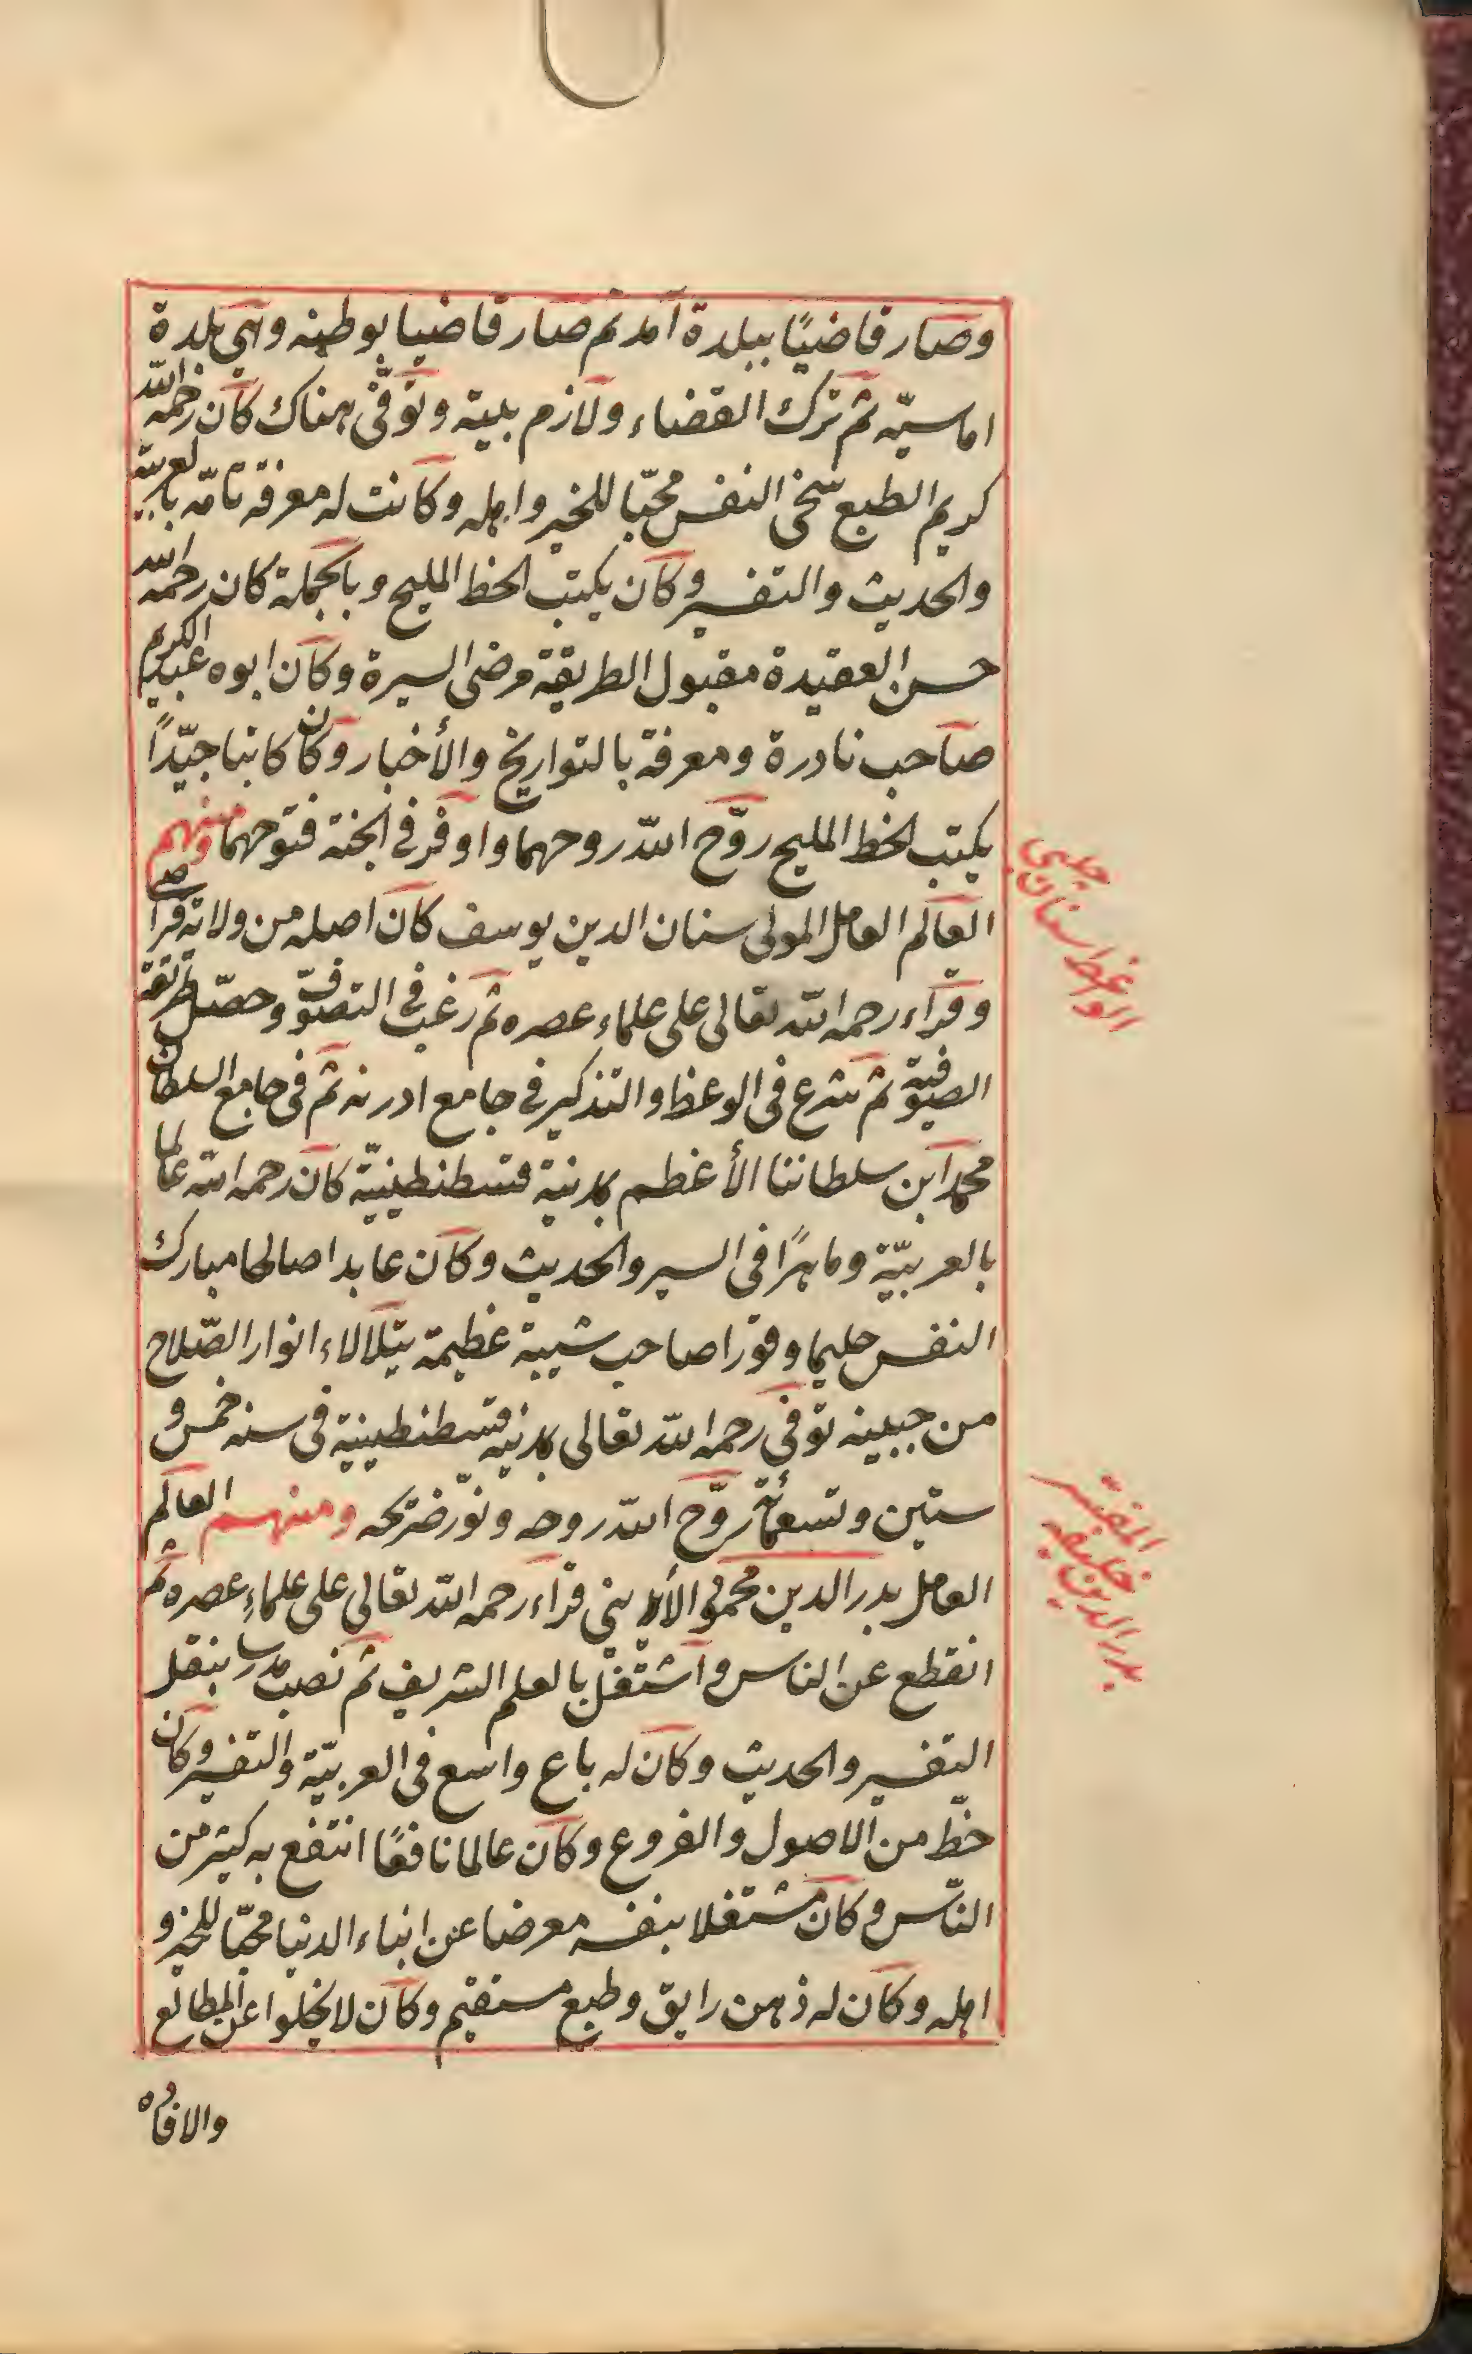 وصار قاضيًا ببلدة آمد ثم صار قاضيا بوطنه وهي بلدة
اماسيّه ثم ترك القضاء ولازم بيته وتوفّى هناك كان رحمه الله
كريم الطبع سخى النفس محبّا للخير واهله وكانت له معرفة تامّه بالعربيّة
والحديث والتفسير وكان يكتب الخط المليح وبالجملة كان رحمه الله
حسن العقيدة مقبول الطريقة مرضى السيرة وكان ابوه عبد الكريم
صاحب نادرة ومعرفة بالتواريخ والأخبار وكان كاتبا جيّدًا
يكتب الخط المليح روّح الله روحهما واوفر في الجنة فتوحهما ومنهم
العالم العامل المولى سنان الدين يوسف كان اصله من ولاية قراصى
وقراء رحمه الله تعالى على علماء عصره ثم رغب في التصوّف وحصّل طريقة
الصوفيّة ثم شرع في الوعظ والتذكير في جامع ادرنه ثم في جامع السلطان
محمد ابن سلطاننا الأعظم بمدينة قسطنطينيّة كان رحمه الله عالما
بالعربيّة وماهرًا في السير والحديث وكان عابدا صالحا مبارك
النفس حليما وقورا صاحب شيبة عظيمة يتلألاء انوار الصّلاح
من جبينه توفّى رحمه الله تعالى بمدينه قسطنطينية في سنه خمس و
ستين وتسعمأئة روّح الله روحه ونوّر ضريحه ومنهم العالم
العامل بدر الدين محمود الأيدينى قراء رحمه الله تعالى على علماءِ عصره ثم
انقطع عن الناس واشتغل بالعلم الشريف ثم نصب مدرسا بنقل
التفسير والحديث وكان له باع واسع في العربيّة والتفسير وكان
حظّ من الاصول والفروع وكان عالما نافعًا انتفع به كثير من
النّاس وكان مشتغلا بنفسه معرضا عن ابناء الدنيا محبّا للخير و
اهله وكان له ذهن رايق وطبع مستقيم وكان لا يخلوا عن المطالع
والافاده
الواعظ سنان چلبى
المفسر بدر الدين خليفه